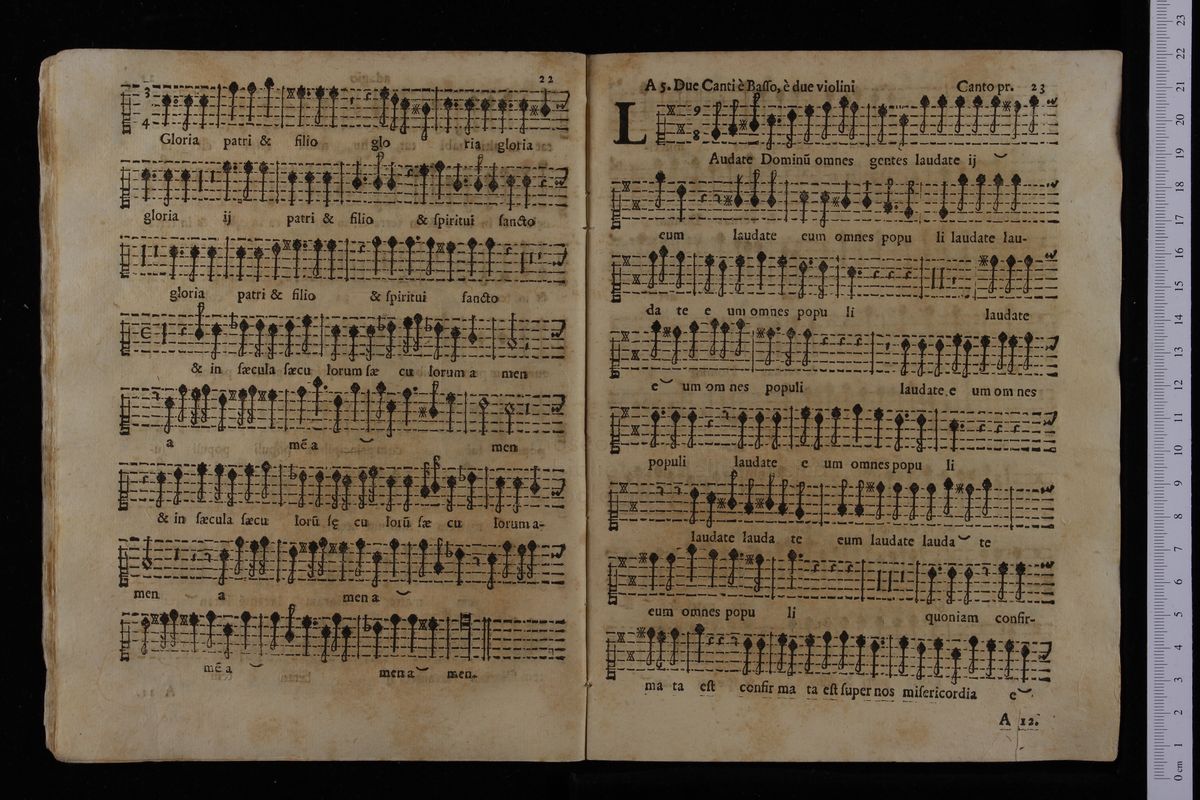 22
3
4
Gloria patri & filio glo ria gloria
gloria ij patri & filio & spiritui sancto
gloria patri & filio & spiritui sancto
& in sæcula sæcu lorum sæ cu lorum a men
a mē a men
& in sæcula sæcu lorū sę cu lorū sæ cu lorum a-
men a men a
mē a men a men.
A 5. Due Canti è Basso, è due violini Canto pr. 23
9
8
LAudate Dominū omnes gentes laudate ij
eum laudate eum omnes popu li laudate lau-
da te e um omnes popu li laudate
e um om nes populi laudate e um om nes
populi laudate e um omnes popu li
laudate lauda te eum laudate lauda te
eum omnes popu li quoniam confir-
ma ta est confir ma ta est super nos misericordia e
A 12.
0 cm 1 2 3 4 5 6 7 8 9 10 11 12 13 14 15 16 17 18 19 20 21 22 23